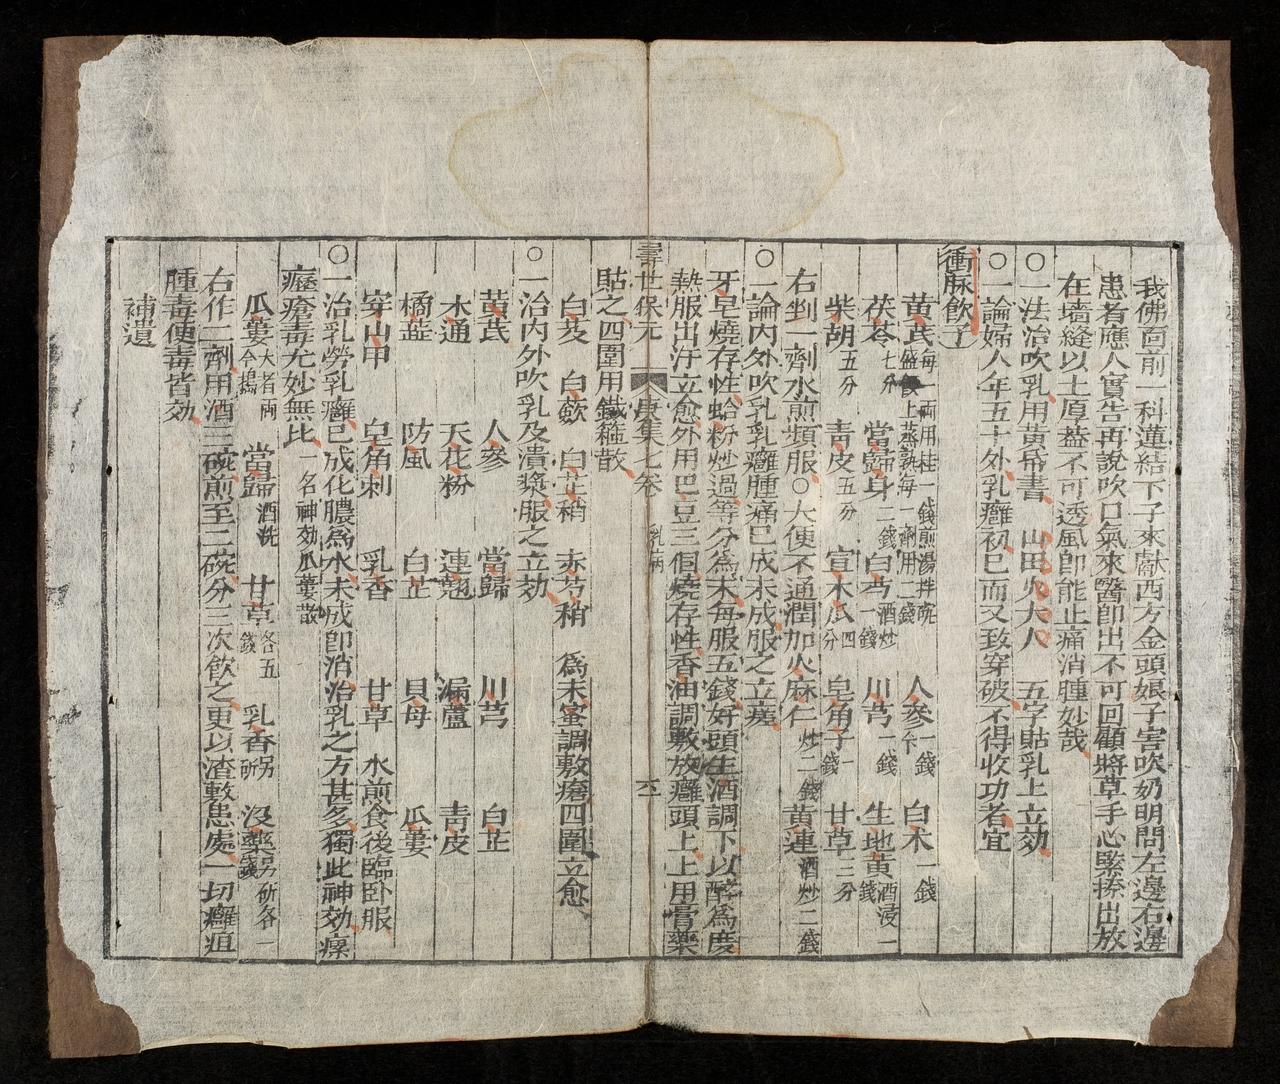 我佛面前一科蓮結下子來獻西方金頭娘子害吹奶明問左邊右邊
患者應人實告再說吹口氣來醫卽出不可回顧將草手心緊捺出放
在墻縫以土厚葢不可透風卽能止痛消腫妙哉
○一法治吹乳用黃帋書 山田火大人 五字貼乳上立効
○一論婦人年五十外乳癰初已而又致穿破不得收功者宜
衝脉飲子
黃芪每一兩用桂一錢煎湯拌碗盛飯上蒸熟每一劑用二錢 人參一錢 白术一錢
茯苓七分 當歸身二錢 白芍酒炒一錢 川芎一錢 生地黃酒浸一錢
柴胡五分 靑皮五分 宣木瓜四分 皂角子一錢 甘草三分
右剉一劑水煎頻服○大便不通潤加火麻仁炒二錢 黃連酒炒二錢
○一論內外吹乳乳癰腫痛已成未成服之立瘥
牙皂燒存性蛤粉炒過等分爲末每服五錢好頭生酒調下以醉爲度
熱服出汗立愈外用巴豆三個燒存性香油調敷放癰頭上上用膏藥
壽世保元 庚集七卷 乳病
貼之四圍用鐵箍散
白芨 白蘞 白芷稍 赤芍稍 爲末蜜調敷瘡四圍立愈
○一治內外吹乳及潰漿服之立効
黃芪 人參 當歸 川芎 白芷
木通 天花粉 連翹 漏蘆 靑皮
橘葢 防風 白芷 貝母 瓜蔞
穿山甲 皂角刺 乳香 甘草 水煎食後臨卧服
○一治乳勞乳癰已成化膿爲水未成卽消治乳之方甚多獨此神効瘰
癧瘡毒尤妙無比一名神効瓜蔞散
瓜蔞大者兩个搗 當歸酒洗 甘草各五錢 乳香另硏 沒藥另硏各一錢
右作二劑用酒三碗煎至二碗分三次飲之更以渣敷患處一切癰疽
腫毒便毒皆効
補遺